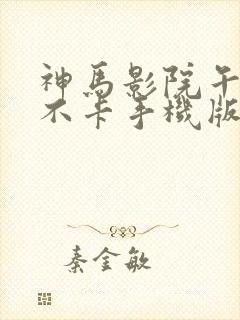 神馬影院午
不卡手機版
秦金敏